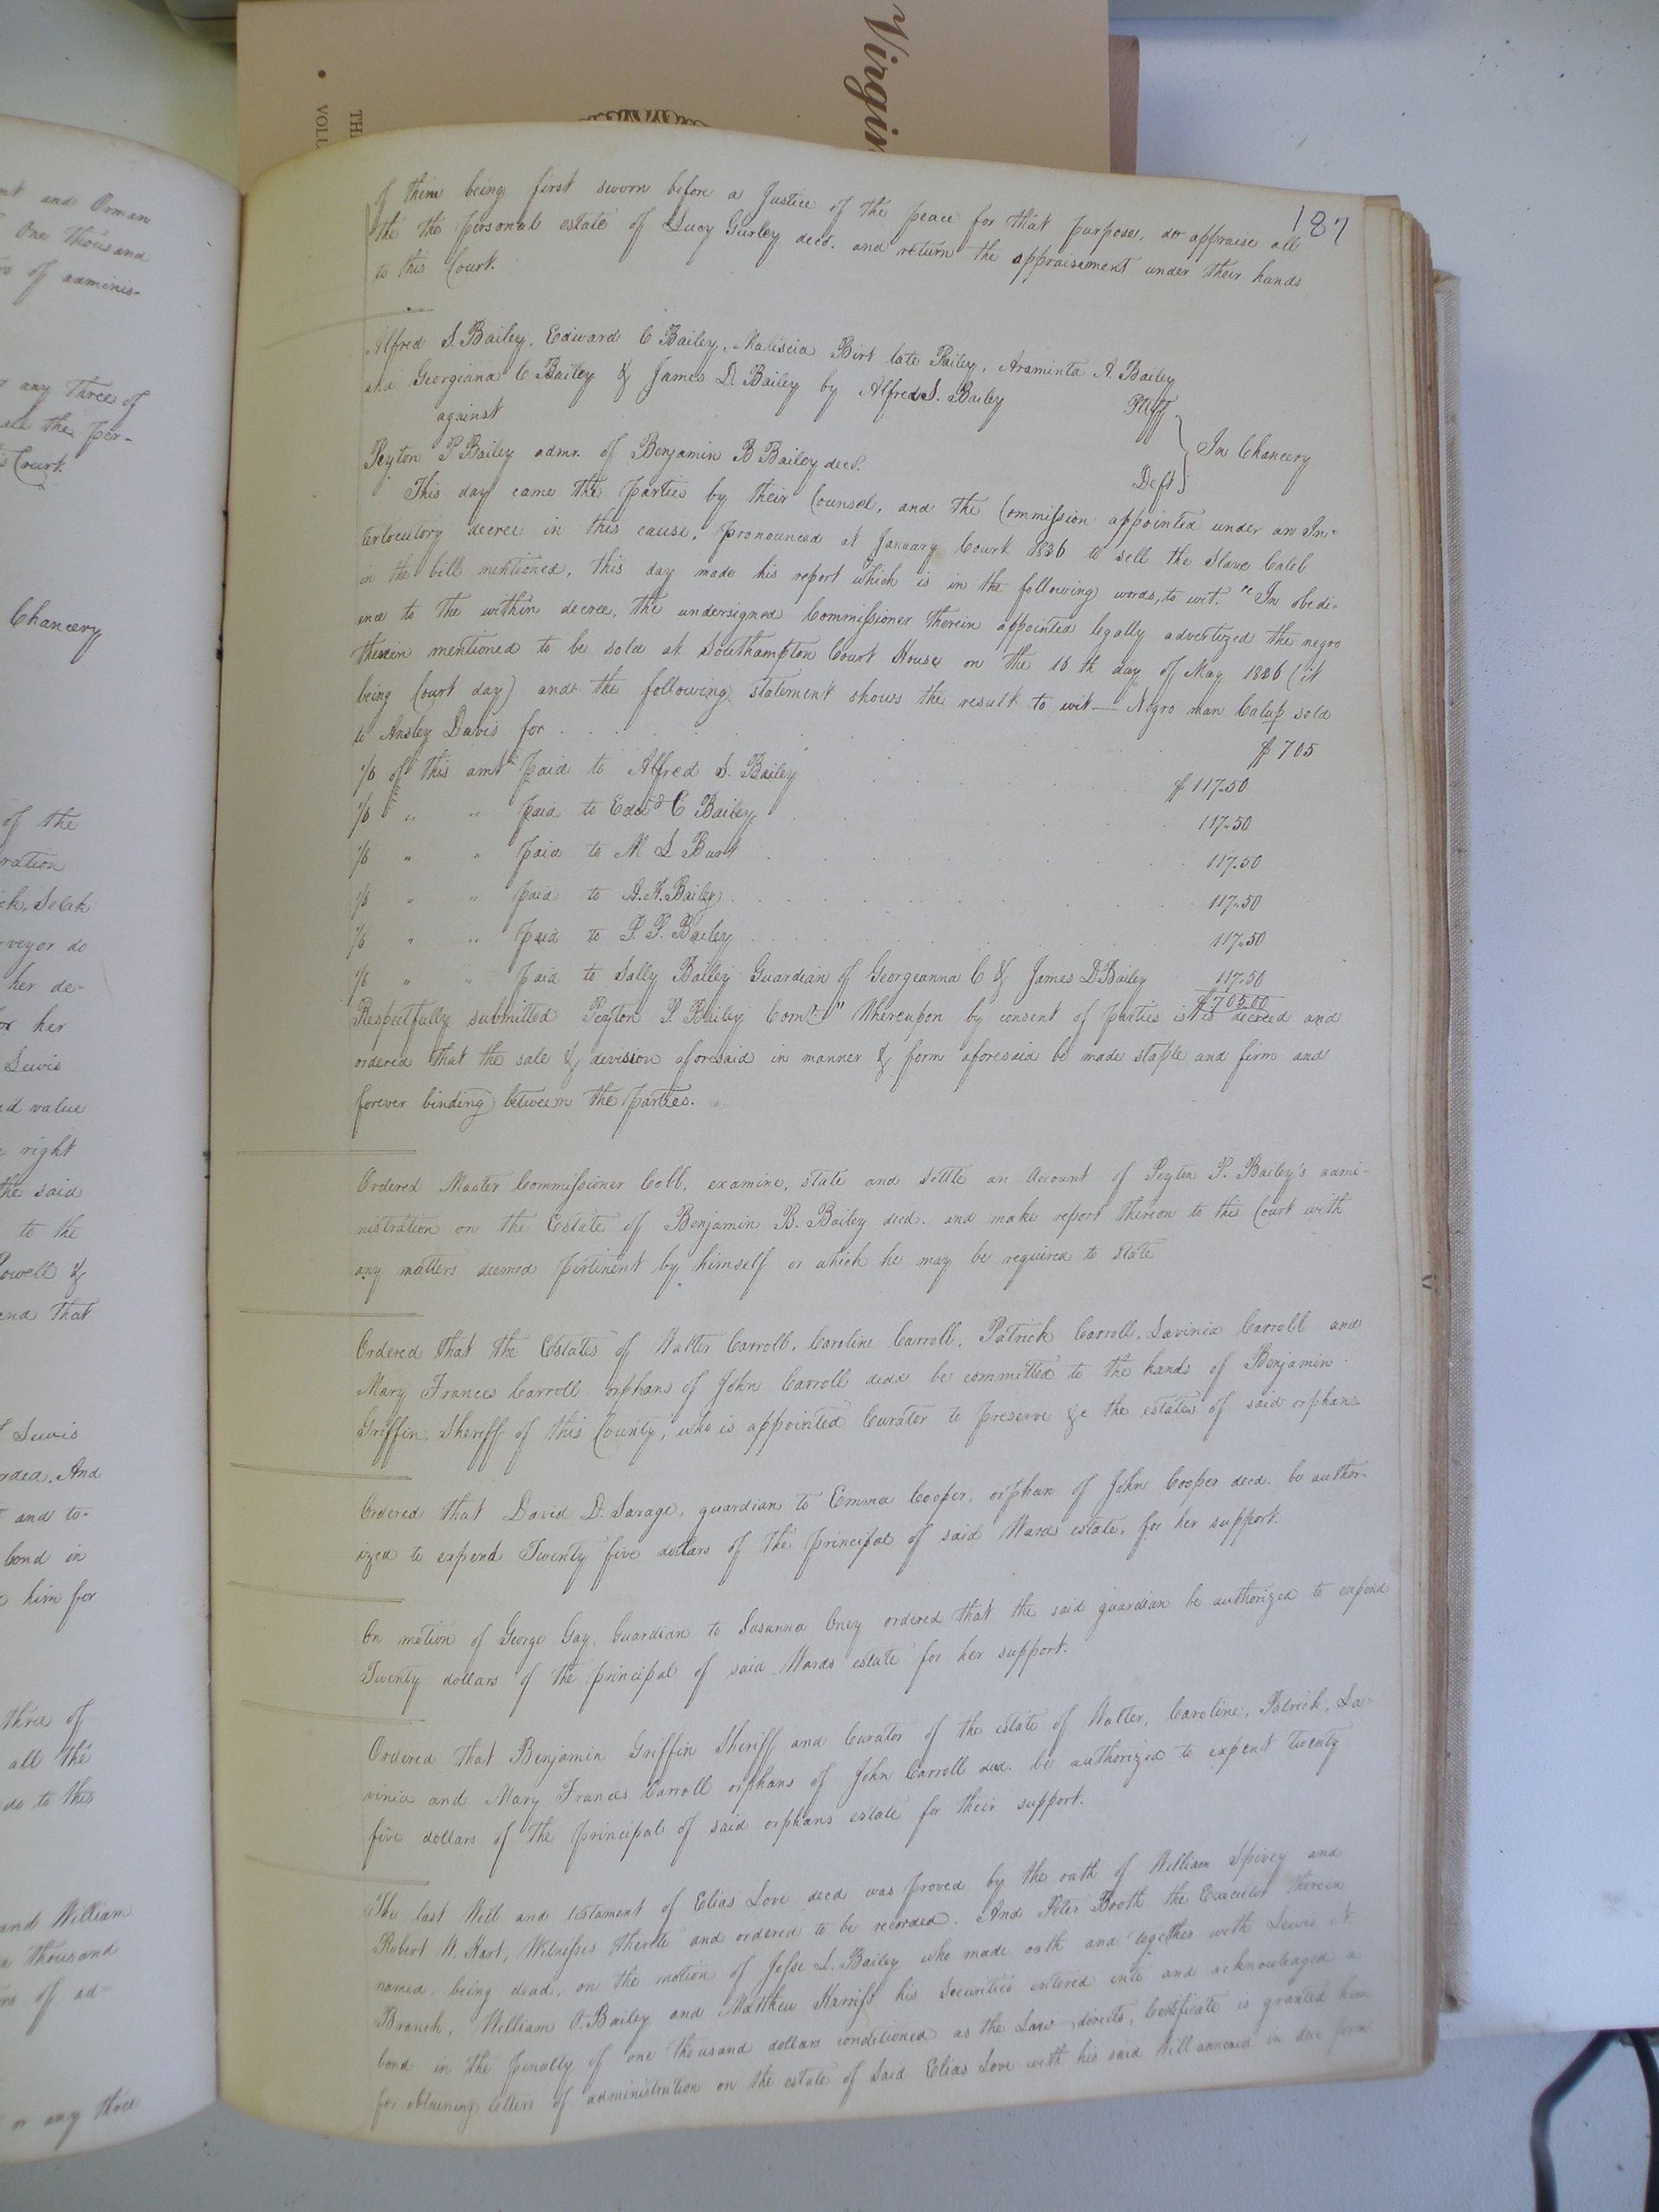 Virgin
THE
VOLU
187
of them being first sworn before a Justice of the peace for that purpose, do appraise all
the the personal estate of Lucy Gurley decd. and return the appraisement under their hands
to this Court.
Alfred S. Bailey, Edward C Bailey, Maliscia Birt late Bailey, Araminta A. Bailey
and Georgiana C Bailey & James D Bailey by Alfred S. Bailey Pltff
against
In Chancery
Peyton P Bailey admr. of Benjamin B Bailey decd. Deft
This day came the parties by their Counsel, and the Commission appointed under an In-
terlocutory decree in this cause, pronounced at January Court 1836 to sell the Slave Caleb
in the bill mentioned, this day made his report which is in the following words, to wit. "In obedi-
ence to the within decree, the undersigned Commissioner therein appointed legally advertized the negro
therein mentioned to be sold at Southampton Court House on the 16th day of May 1836 (it
being Court day) and the following statement shows the result to wit — Negro man Calup sold
to Ansley Davis for . . . $705
1/6 of this amt paid to Alfred S. Bailey $117.50
1/6 " " paid to Edwd C Bailey 117.50
1/6 " " paid to M S Burt 117.50
1/6 " " paid to A. A. Bailey 117.50
1/6 " " paid to P. P. Bailey 117.50
1/6 " " paid to Sally Bailey Guardian of Georgeanna C & James D Bailey 117.50
$705.00
Respectfully submitted Peyton P. Bailey Comr" Whereupon by consent of parties it is decreed and
ordered that the sale & devision aforesaid in manner & form aforesaid be made staple and firm and
forever binding between the parties.
Ordered Master Commissioner Cobb, examine, state and settle an Account of Peyton P. Bailey's admi-
nistration on the Estate of Benjamin B. Bailey decd. and make report thereon to this Court with
any matters deemed pertinent by himself or which he may be required to state
Ordered that the Estates of Walter Carroll, Caroline Carroll, Patrick Carroll, Lavinia Carroll and
Mary Frances Carroll orphans of John Carroll decd be committed to the hands of Benjamin
Griffin, Sheriff of this County, who is appointed Curator to preserve &c the estates of said orphans.
Ordered that David D. Savage, guardian to Emma Cooper, orphan of John Cooper decd. be author-
ized to expend Twenty five dollars of the principal of said Wards estate, for her support.
On motion of George Gay, Guardian to Susanna Oney ordered that the said guardian be authorized to expend
Twenty dollars of the principal of said Wards estate for her support.
Ordered that Benjamin Griffin Sheriff and Curator of the estate of Walter, Caroline, Patrick, La-
vinia and Mary Frances Carroll orphans of John Carroll decd. be authorized to expend twenty
five dollars of the principal of said orphans estate for their support.
The last Will and testament of Elias Love decd was proved by the oath of William Spivey and
Robert W. Hart, Witnesses thereto and ordered to be recorded. And Peter Booth the Executor therein
named, being dead, on the motion of Jesse L. Bailey who made oath and together with Lewis N.
Branch, William O. Bailey and Matthew Harriss his Securities entered into and acknowledged a
bond in the penalty of one thousand dollars conditioned as the Law directs, Certificate is granted him
for obtaining letters of administration on the estate of said Elias Love with his said Will annexed in due form